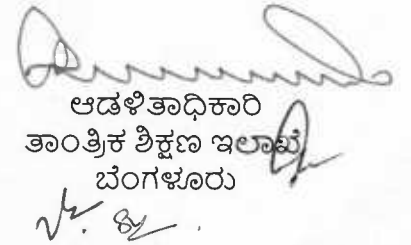 ಆಡಳಿತಾಧಿಕಾರಿ
ತಾಂತ್ರಿಕ ಶಿಕ್ಷಣ ಇಲಾಖೆ
ಬೆಂಗಳೂರು